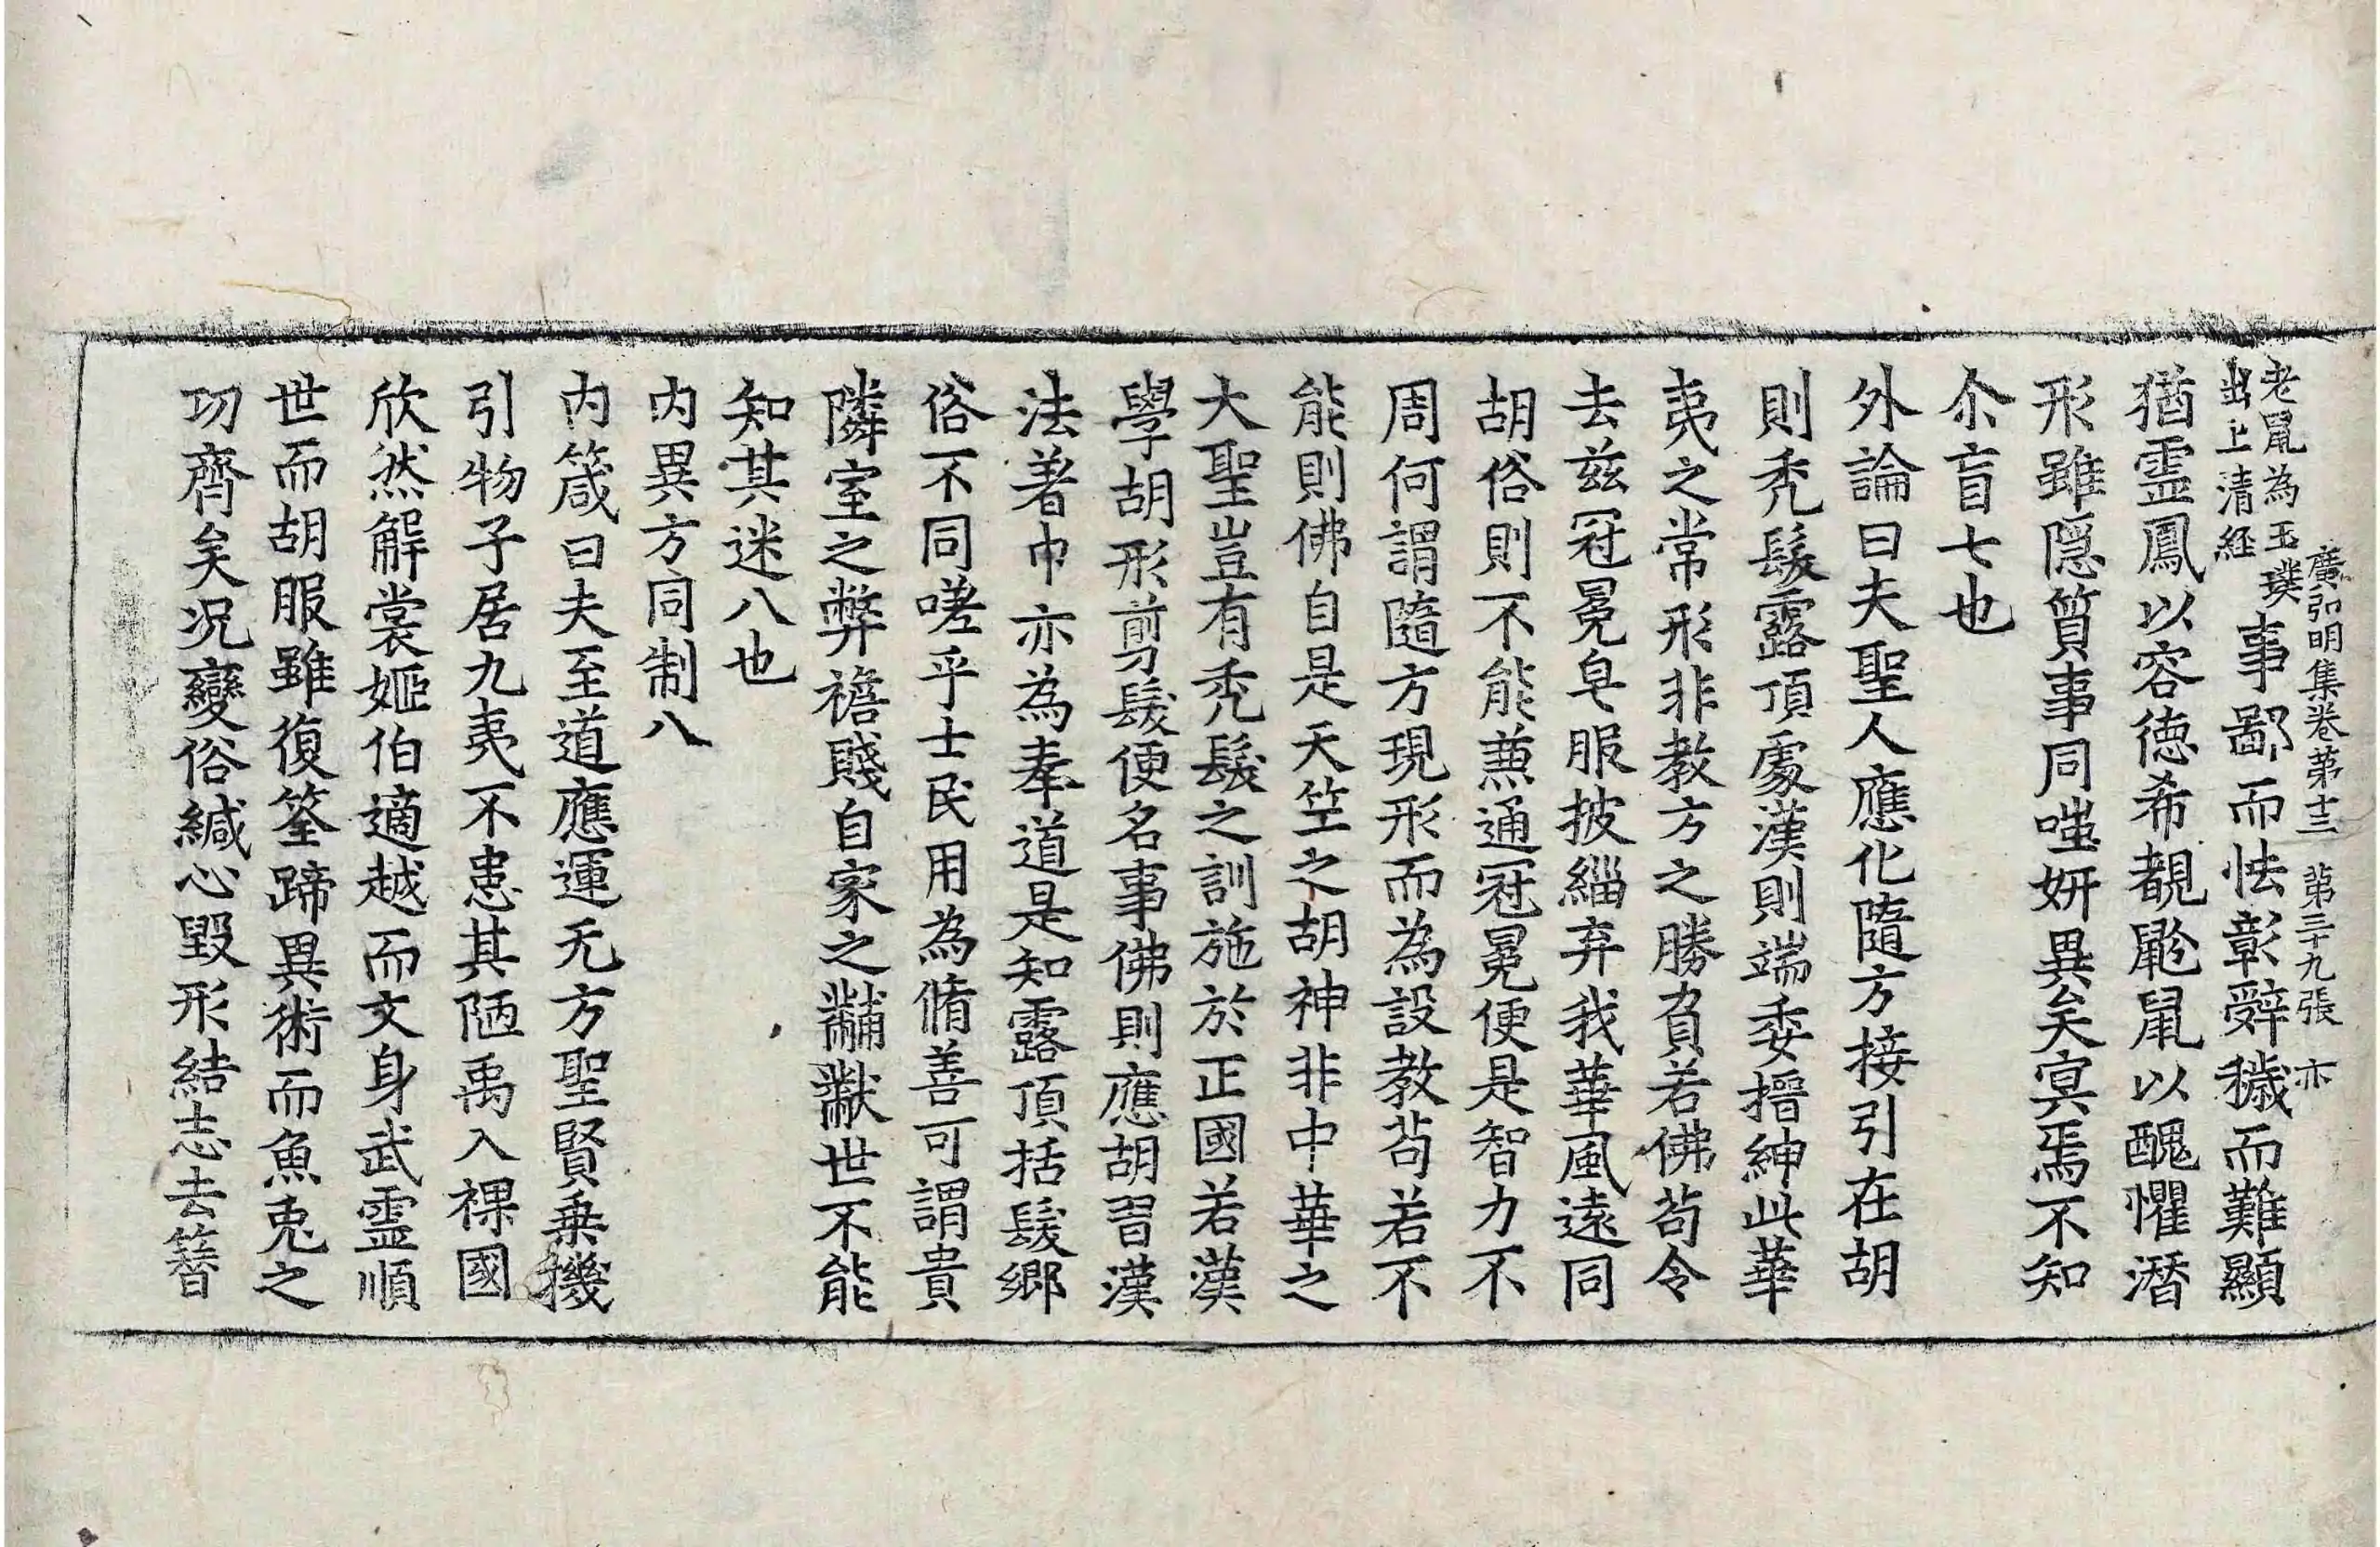 廣弘明集卷第十三　第三十九張　亦
老䑕為玉璞
出上清経
事鄙而怯彰辤穢而難顯
猶霊鳳以容德希覩鼢䑕以醜懼潛
形雖隱質事同嗤妍異矣㝠焉不知
尒盲七也
外論曰夫聖人應化隨方接引在胡
則秃髮露頂處漢則端委搢紳此華
夷之常形非教方之勝負若佛苟令
去茲冠冕皂服披緇弃我華風遠同
胡俗則不能兼通冠冕便是智力不
周何謂隨方現形而為設教苟若不
能則佛自是天竺之胡神非中華之
大聖豈有秃髮之訓施於正國若漢
學胡形剪髮便名事佛則應胡習漢
法著巾亦為奉道是知露頂括髮鄉
俗不同嗟乎士民用為脩善可謂貴
隣室之弊襜賤自家之黼黻世不能
知其迷八也
内異方同制八
内箴曰夫至道應運无方聖賢乗機
引物子居九夷不患其陋禹入裸國
欣然解裳姬伯適越而文身武霊順
世而胡服雖復筌蹄異術而魚兎之
功齊矣况變俗緘心毀形結志去簪